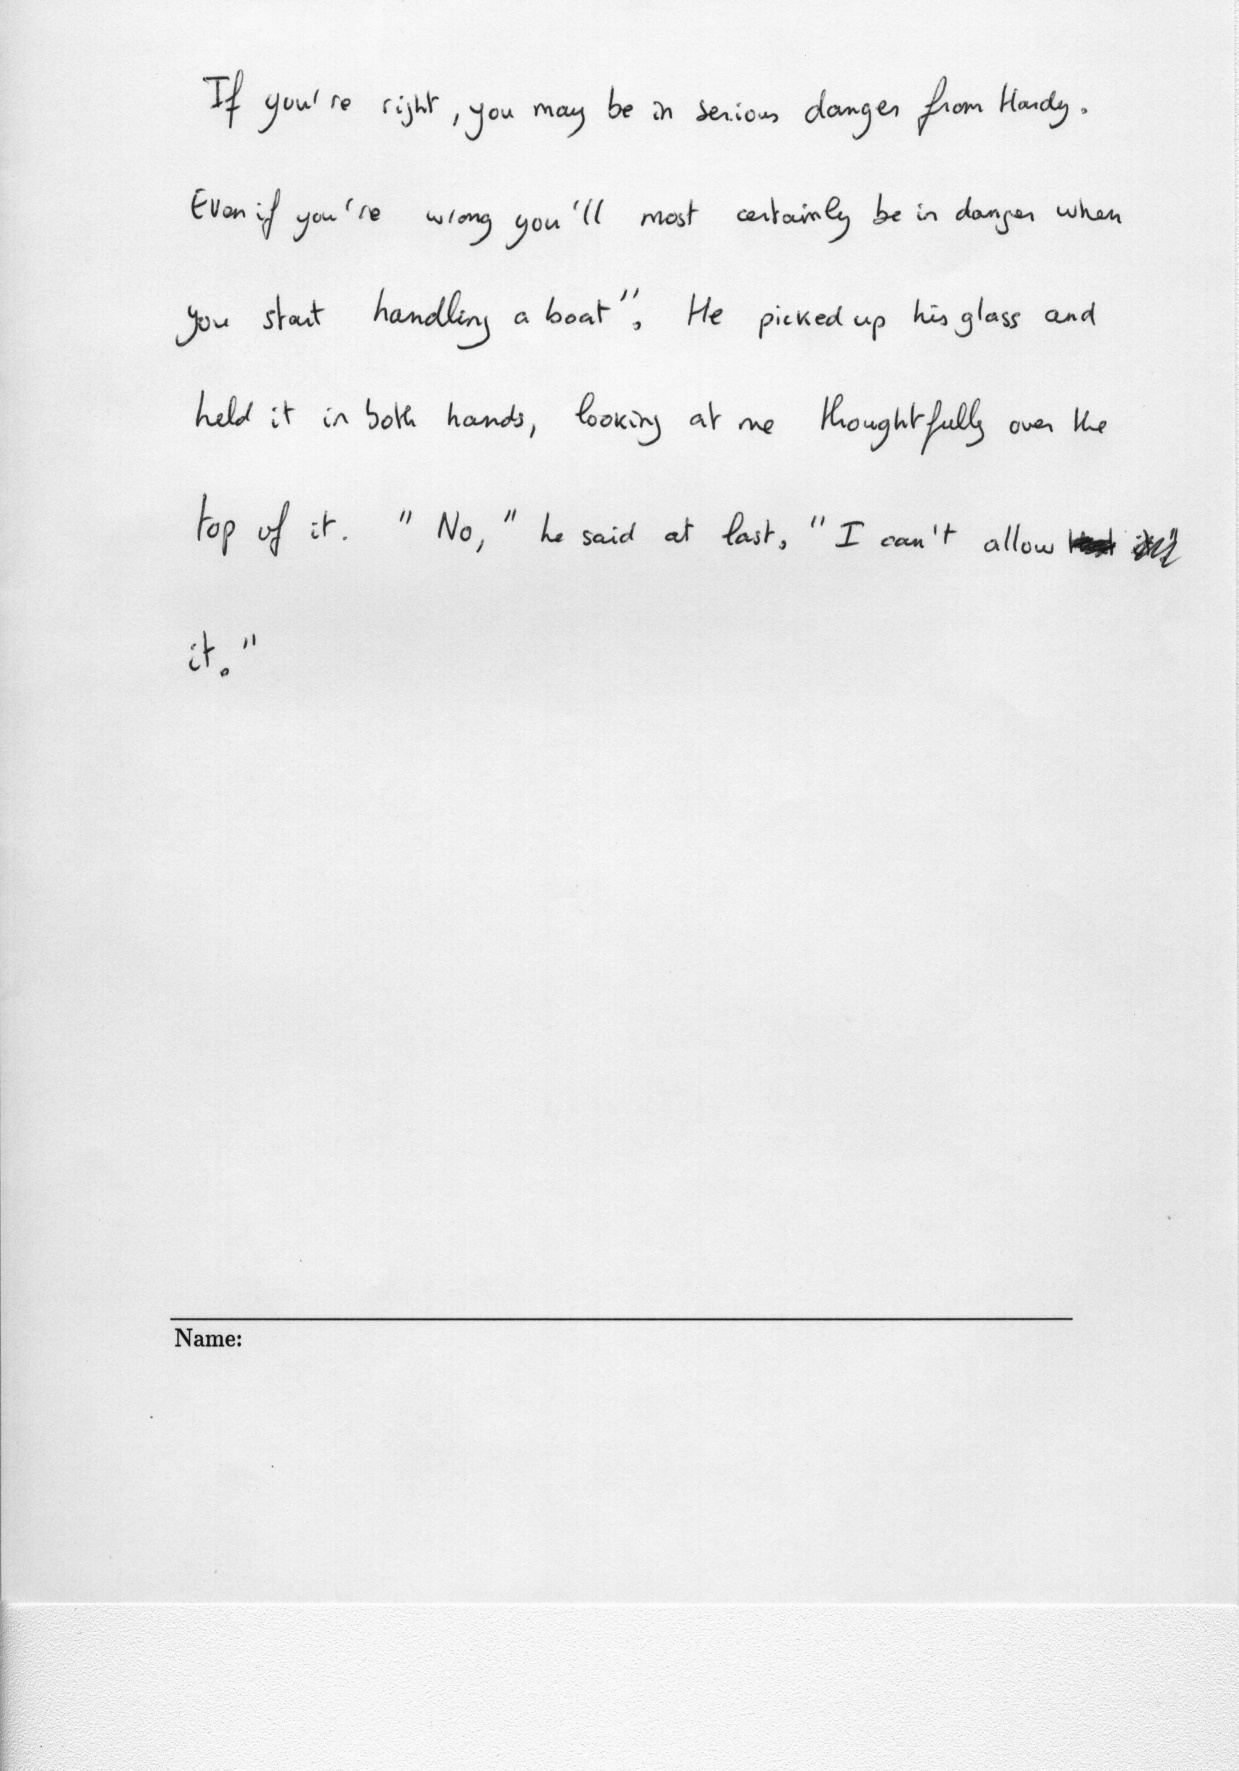 If you're right, you may be in serious danger from Hardy.
Even if you're wrong you'll most certainly be in danger when
you start handling a boat". He picked up his glass and
held it in both hands, looking at me thoughtfully over the
top of it. "No," he said at last, "I can't allow
it."
Name: